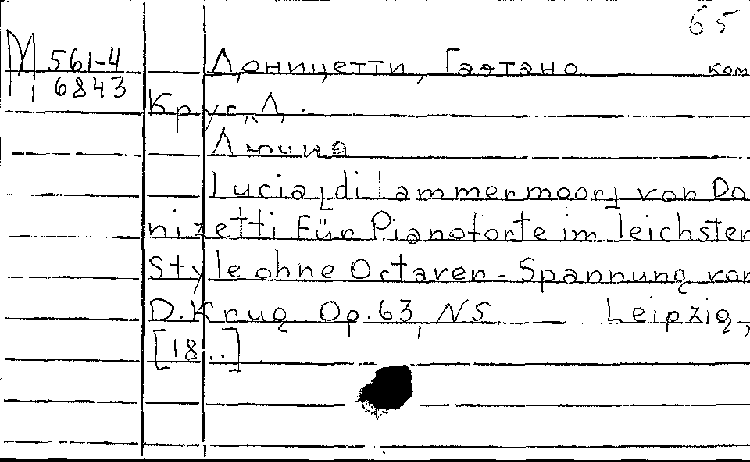 65
М 561-4
6843
Доницетти, Гаэтано ком
Круг, Д.
Лючия
Lucia [di Lammermoor] von Do
nizetti Für Pianoforte im leichsten
Style ohne Octaven-Spannung von
D. Krug Op.63, N5 — Leipzig,
[18..]